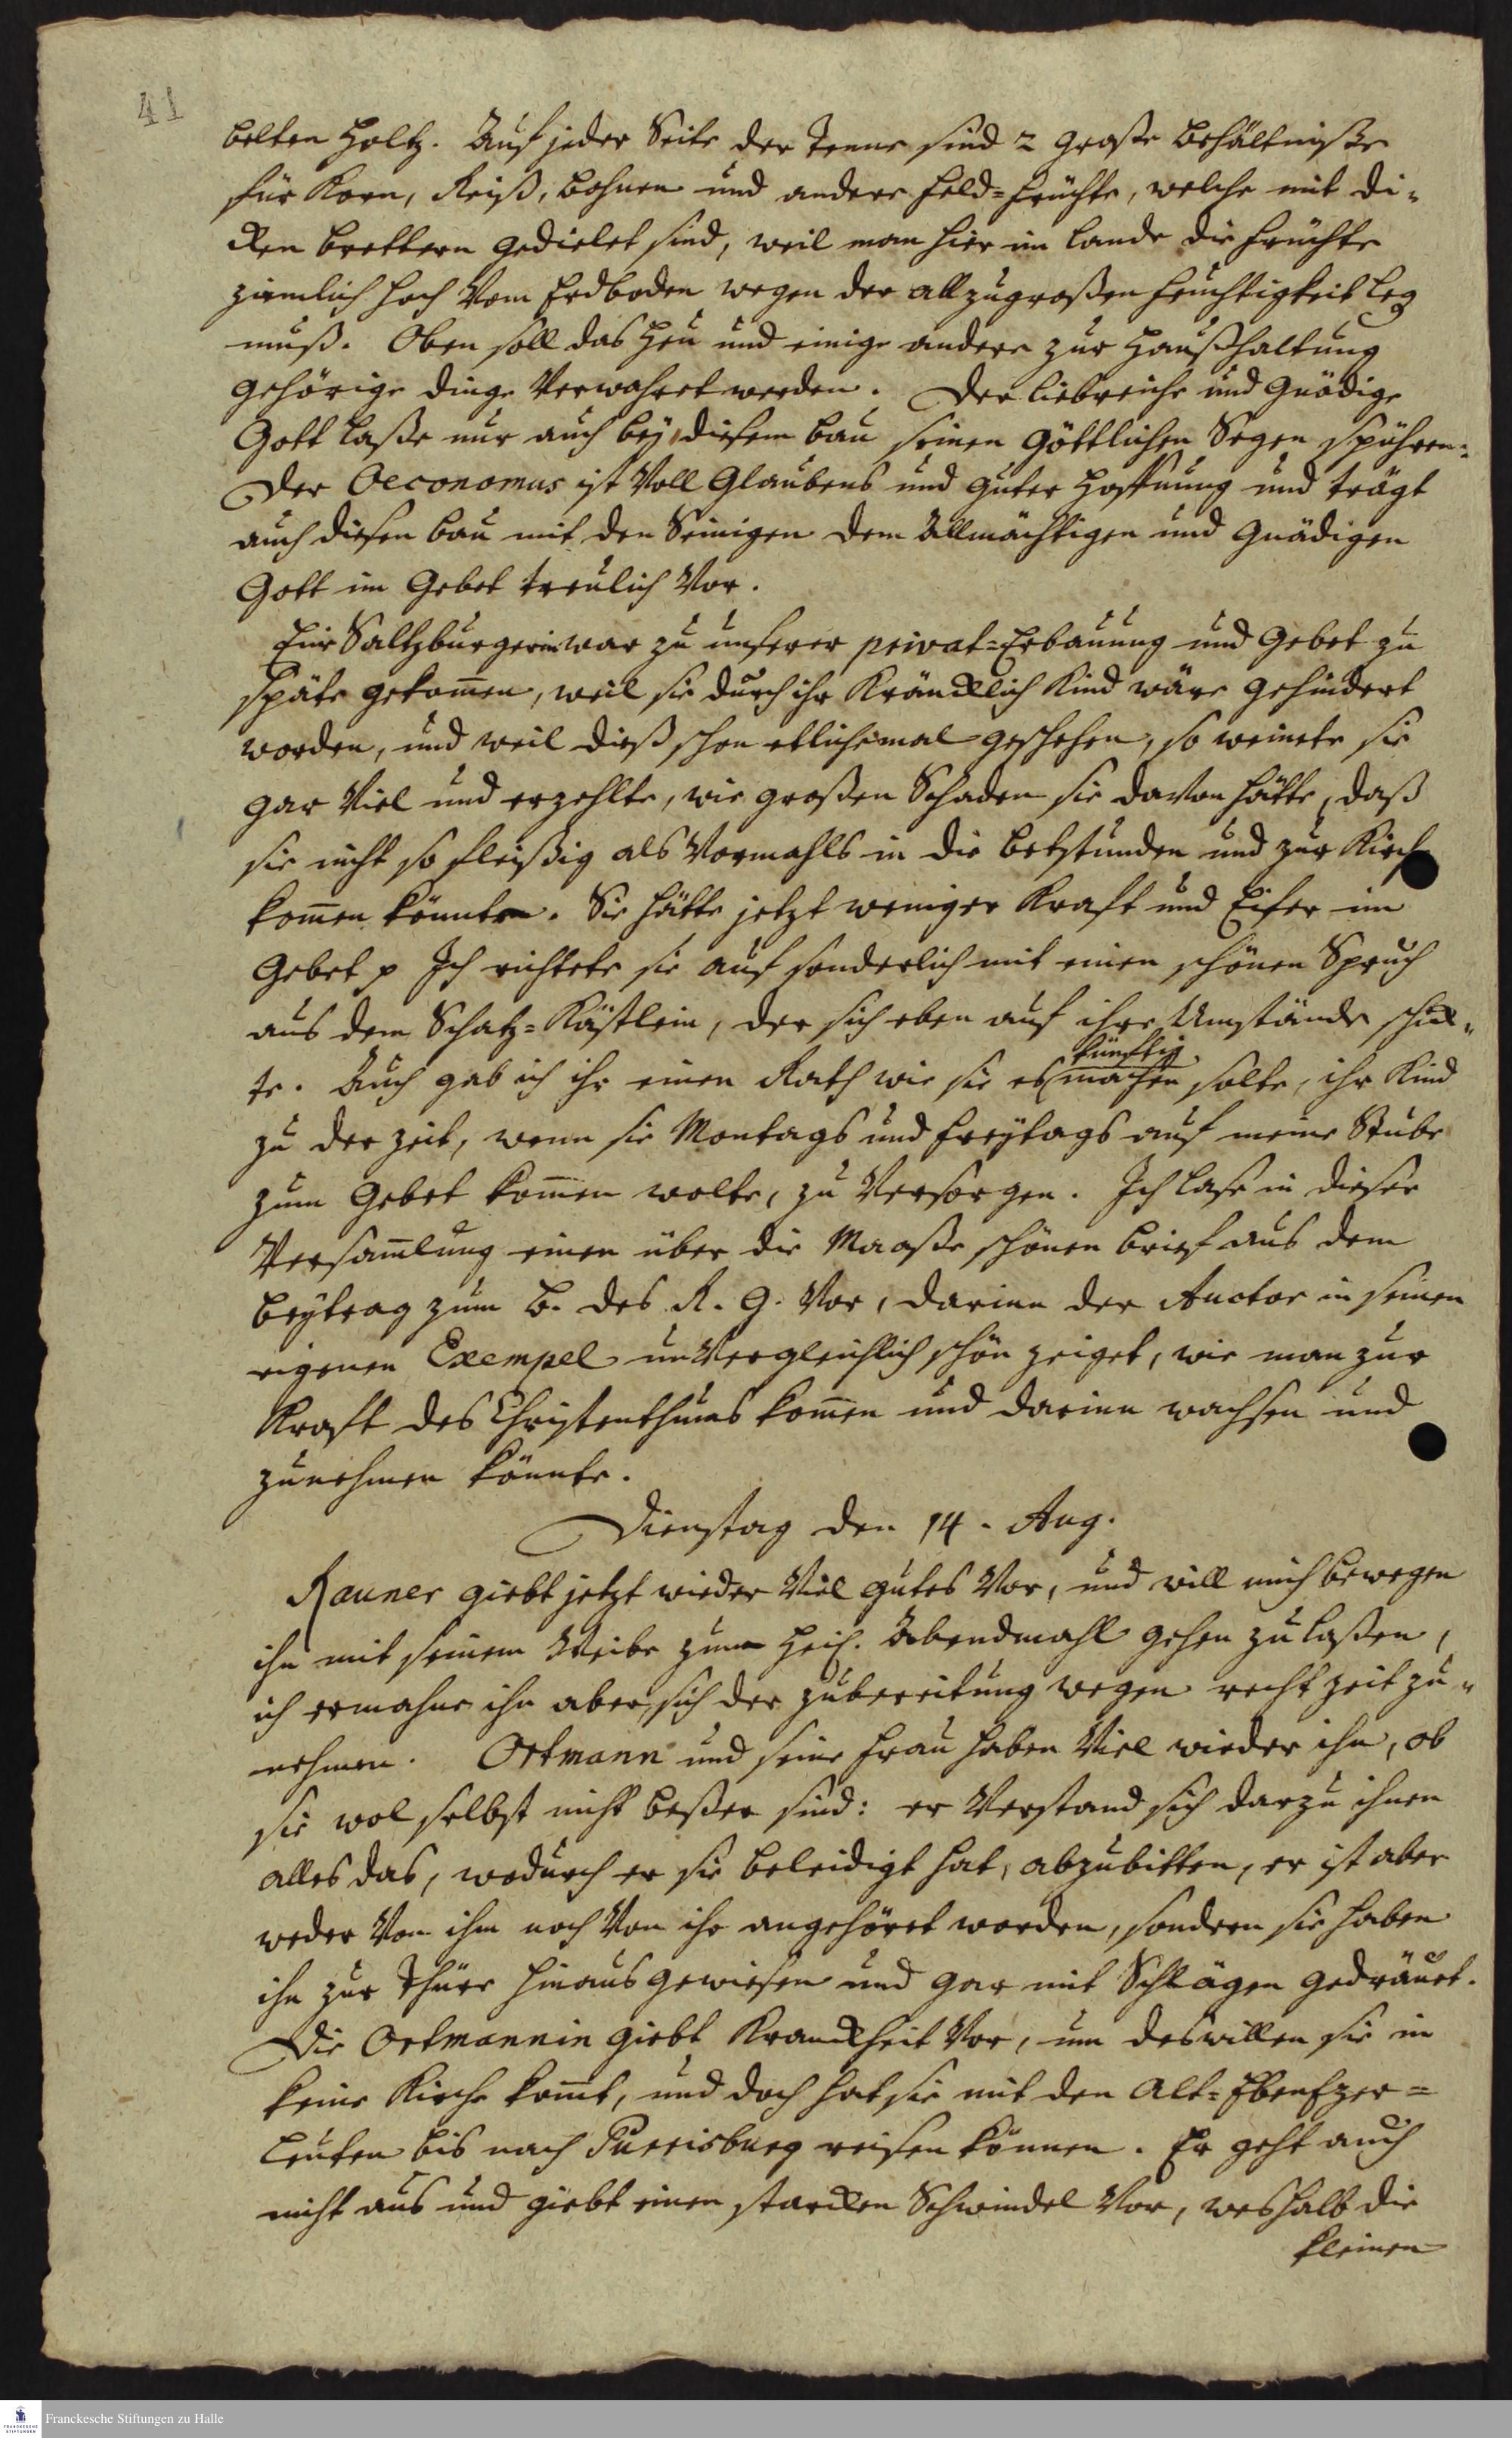 41
belten Holtz. Auf jeder Seite der Tenne sind 2 große Behältniße
für Korn, Reiß, Bohnen und andere Feld-Früchte, welche mit di-
cken Brettern gedielet sind, weil man hier im Lande die Früchte
ziemlich hoch vom Erdboden wegen der allzugroßen Feuchtigkeit leg
muß. Oben soll das Heu und einige andere zur Haußhaltung
gehörige Dinge verwahret werden. Der liebreiche und Gnädige
Gott laße nur auch bey diesem Bau seinen Göttlichen Segen spühren.
Der Oeconomus ist voll Glaubens und guter Hoffnung und trägt
auch diesen Bau mit den Seinigen dem Allmächtigen und Gnädigen
Gott im Gebet treulich vor.
Eine Saltzburgerin war zu unserer privat-Erbauung und Gebet zu
späte gekom̄en, weil sie durch ihr Kräncklich Kind wäre gehindert
worden, und weil dieß schon etlichemal geschehen, so weinete sie
gar viel und erzehlte, wie großen Schaden sie davon hätte, daß
sie nicht so fleißig als vormahls in die Betstunden und zur Kirch
kom̄en könnte. Sie hätte jetzt weniger Kraft und Eifer im
Gebet p Ich richtete sie auf sonderlich mit einen schönen Spruch
aus dem Schatz-Kästlein, der sich eben auf ihre Umstände schick-
künftig
te. Auch gab ich ihr einen Rath wie sie es machen solte, ihr Kind
zu der Zeit, wenn sie Montags und Freytags auf meine Stube
zum Gebet kom̄en wolte, zu versorgen. Ich lase in dieser
Versam̄lung einen über die Maaße schönen Brief aus dem
Beytrag zum B. des R. G. vor, darinn der Auctor in seinen
eigenen Exempel unvergleichlich schön zeiget, wie man zur
Kraft des Christenthums kom̄en und darinn wachsen und
zunehmen könnte.
Dienstag den 14. Aug.
Rauner giebt jetzt wieder viel gutes vor, und will mich bewegen
ihn mit seinem Weibe zum Heil. Abendmahl gehen zu laßen,
ich ermahne ihn aber, sich der Zubereitung wegen recht Zeit zu-
nehmen. Ortmann und seine Frau haben viel wieder ihn, ob
sie wol selbst nicht beßer sind: er verstand sich darzu ihnen
alles das, wodurch er sie beleidigt hat, abzubitten, er ist aber
weder von ihm noch von ihr angehöret worden, sondern sie haben
ihn zur Thüre hinaus gewiesen und gar mit Schlägen gedräuet.
Die Ortmannin giebt Kranckheit vor, um deswillen sie in
keine Kirche kom̄t, und doch hat sie mit den Alt-Ebenezer-
Leuten bis nach Purrisburg reisen können. Er geht auch
nicht aus und giebt einen starcken Schwindel vor, weshalb die
kleinen
Franckesche Stiftungen zu Halle